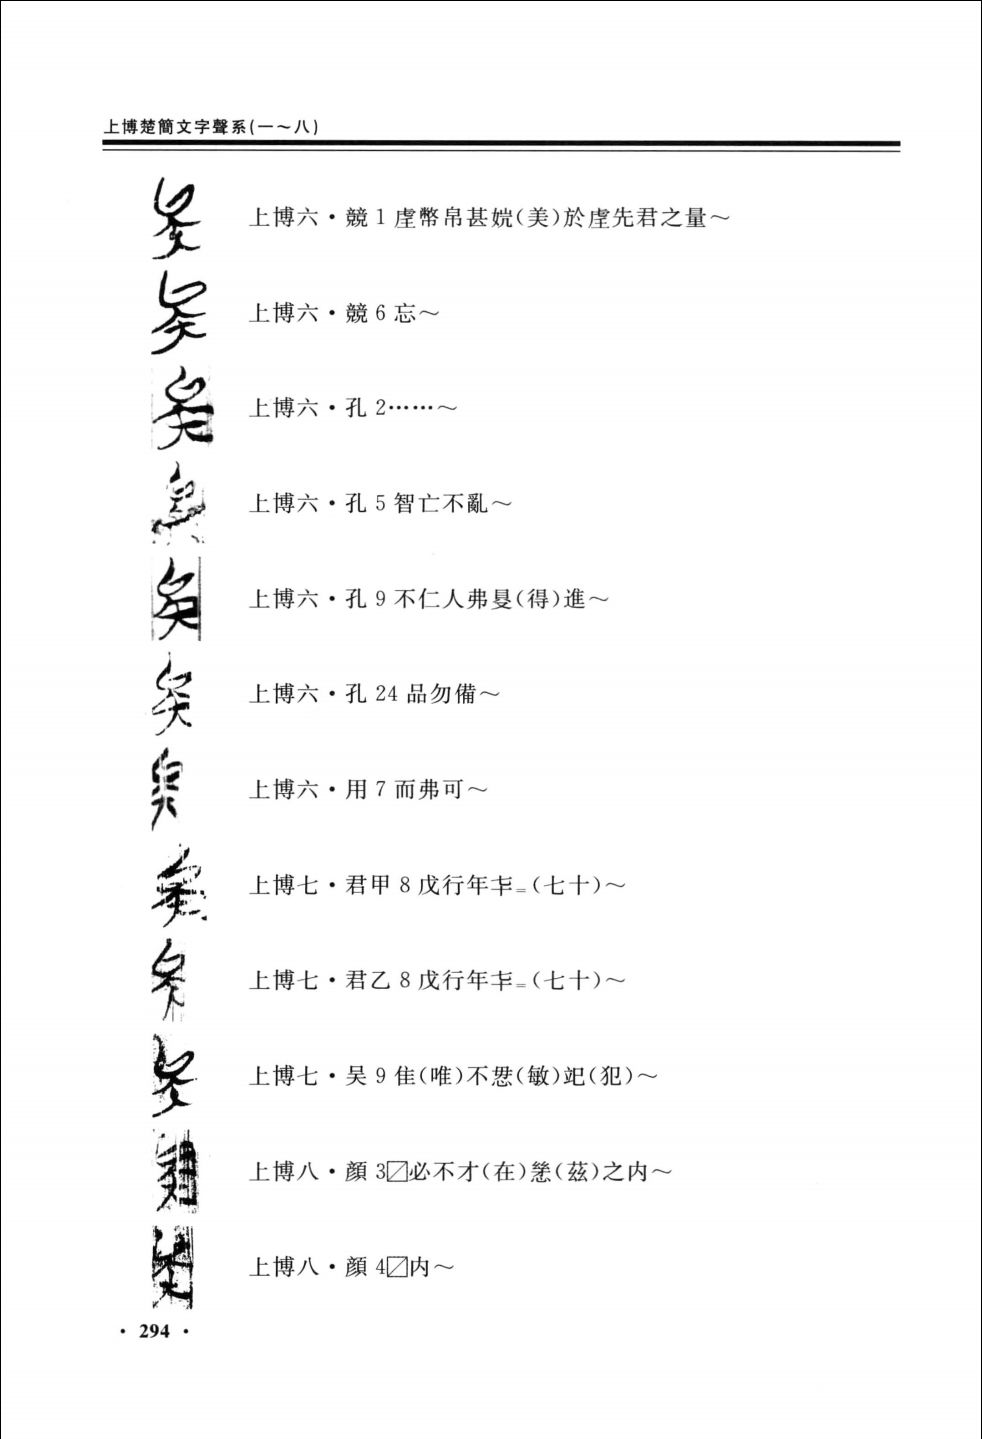 上博楚簡文字聲系(一～八)
上博六·競 1 虗幣帛甚娧(美)於虗先君之量～
上博六·競 6 忘～
上博六·孔 2……～
上博六·孔 5 智亡不亂～
上博六·孔 9 不仁人弗㝵(得)進～
上博六·孔 24 品勿備～
上博六·用 7 而弗可～
上博七·君甲 8 戊行年=(七十)～
上博七·君乙 8 戊行年=(七十)～
上博七·吴 9 隹(唯)不(敏)(犯)～
上博八·顔 3☑必不才(在)(茲)之内～
上博八·顔 4☑内～
· 294 ·